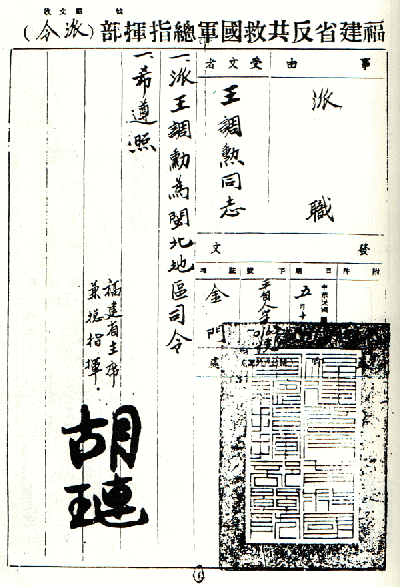 福建省反共救國軍總指揮部（派令）
事由
派職
受文者
王調勲同志
發文
附件
日期
中華民國
駐地
金門
一、派王調勳為閩北地區司令
一、希遵照
福建省主席
兼總指揮。
胡璉